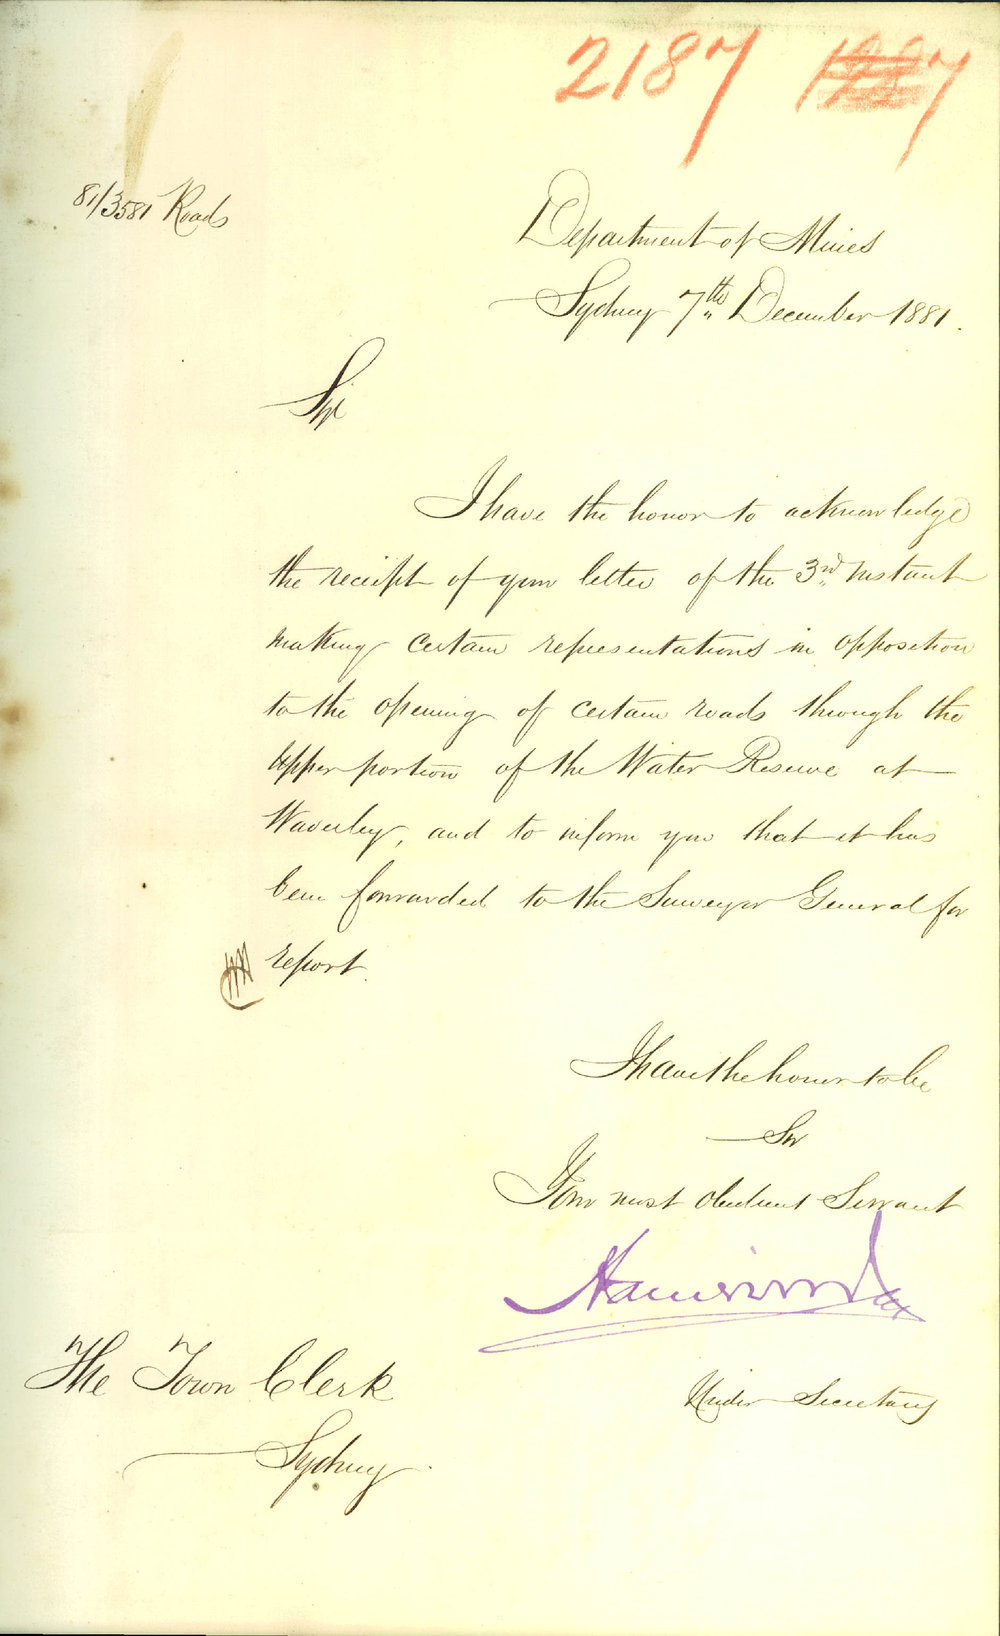 2187
81/3581 Roads
Department of Mines
Sydney 7th December 1881.
Sir
I have the honor to acknowledge
the receipt of your letter of the 3rd Instant
making certain representations in opposition
to the opening of certain roads through the
Upper portion of the Water Reserve at
Waverley, and to inform you that it has
been forwarded to the Surveyor General for
report.
I have the honor to be
Sir
Your most obedient Servant
Under Secretary
The Town Clerk
Sydney